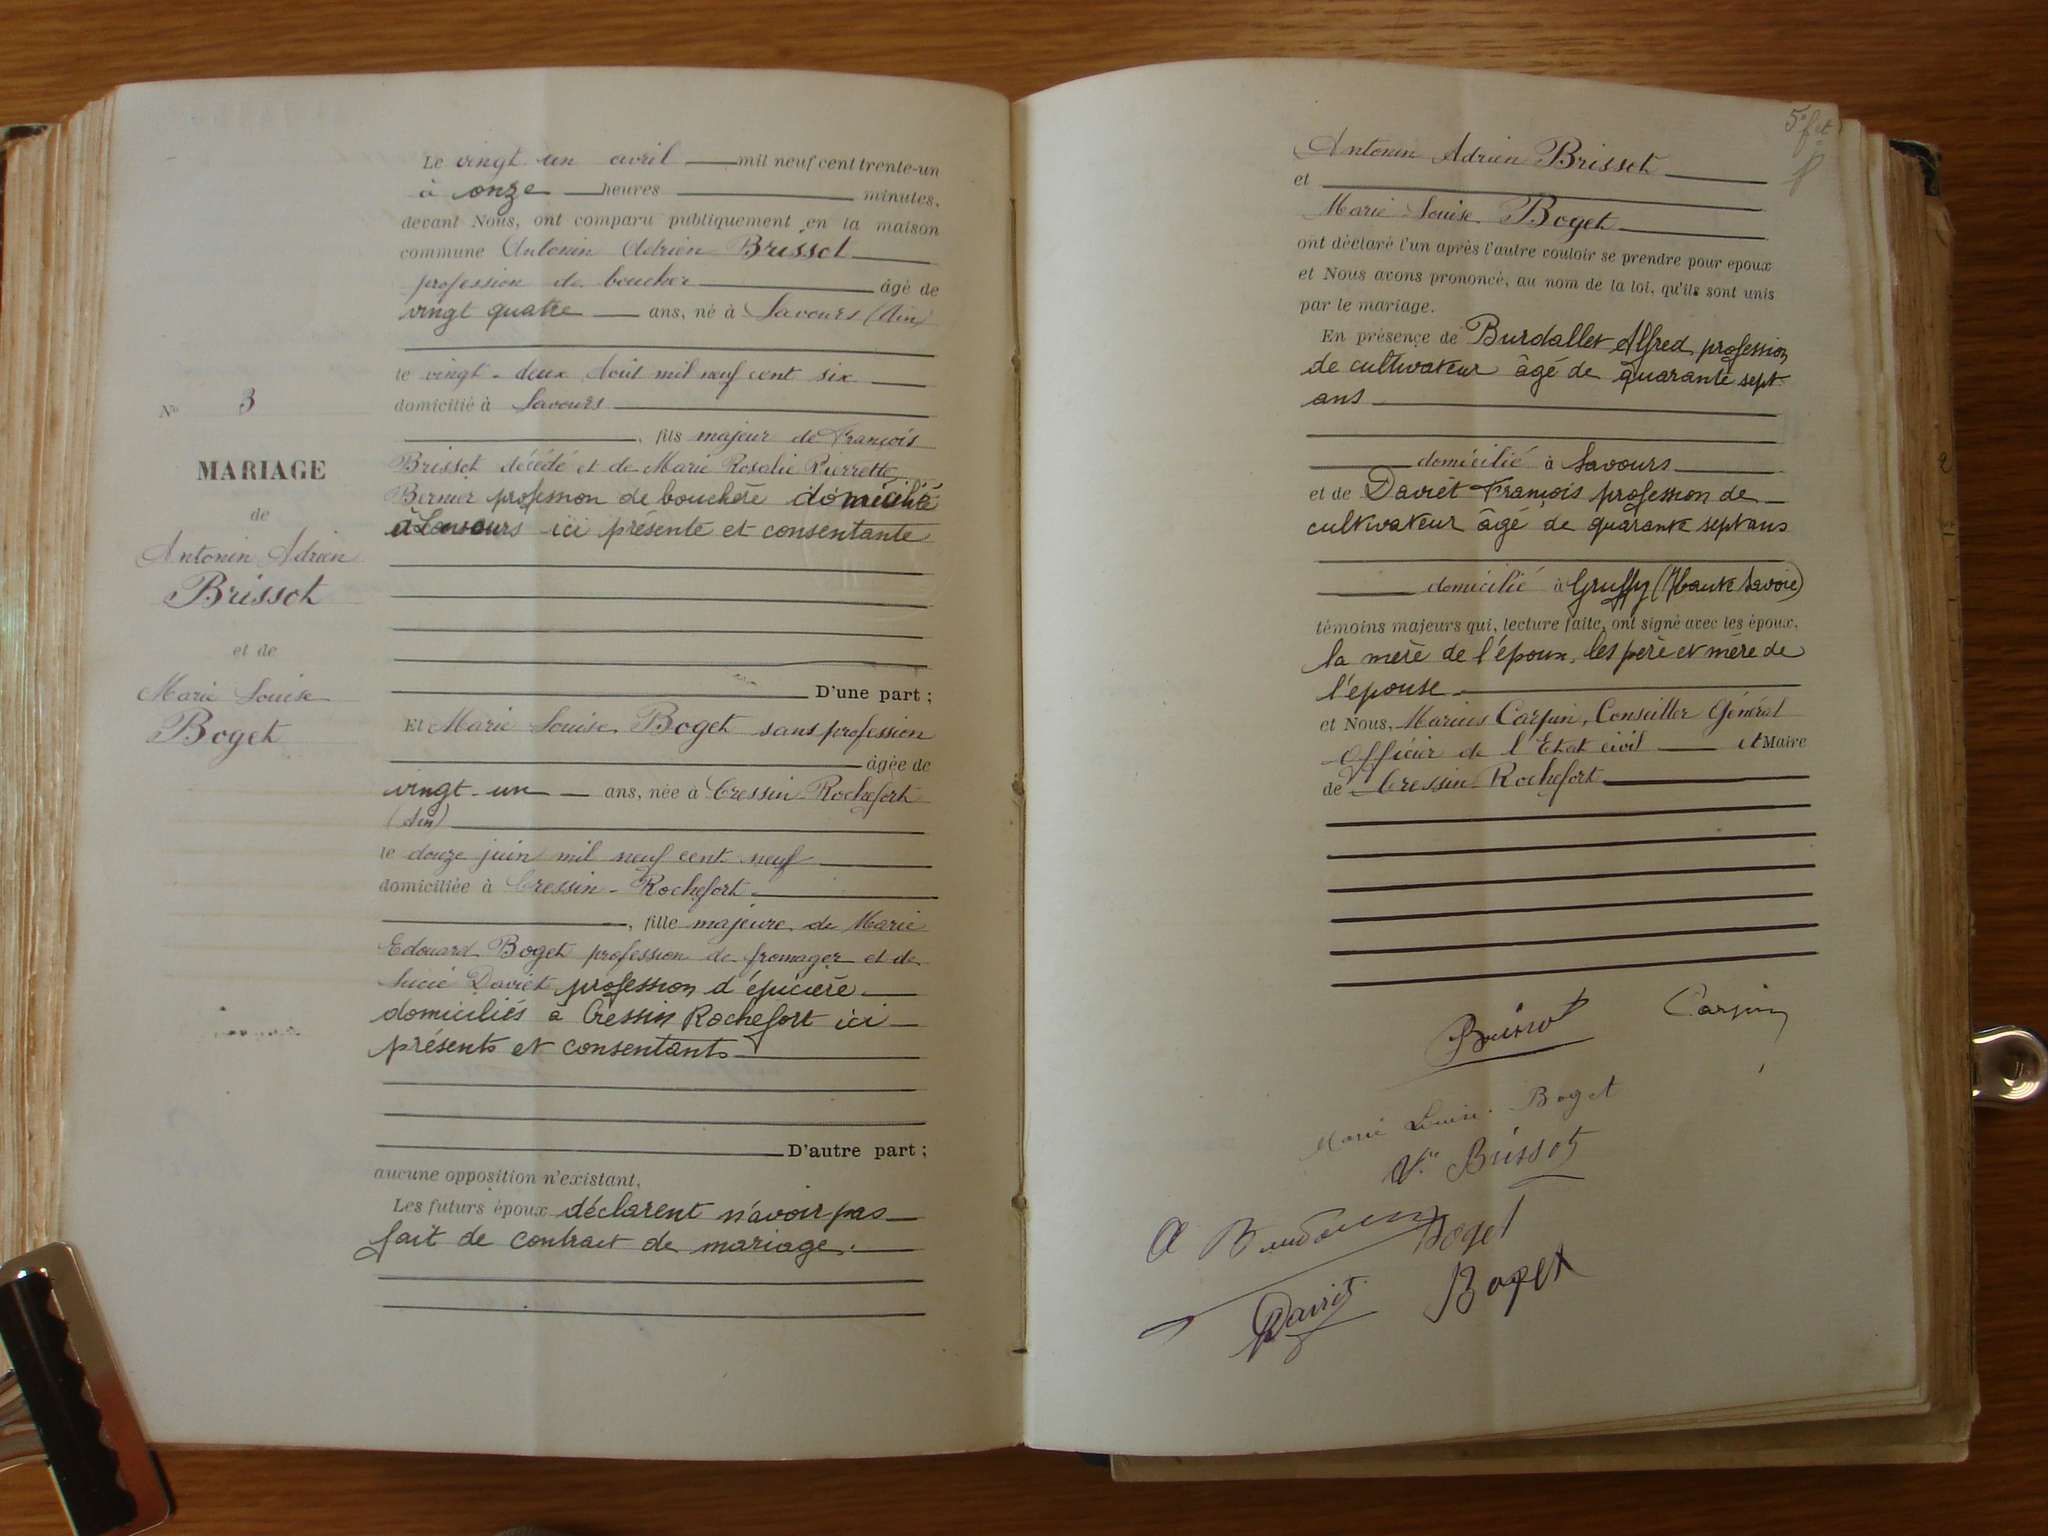 N° 3
MARIAGE
de
Antonin Adrien
Brissot
et de
Marie Louise
Boget
Le vingt un avril mil neuf cent trente-un
à onze heures minutes,
devant Nous, ont comparu publiquement en la maison
commune Antonin Adrien Brissot
profession de boucher âgé de
vingt quatre ans, né à Lavours (Ain)
le vingt-deux Août mil neuf cent six
domicilié à Lavours
, fils majeur de François
Brissot décédé et de Marie Rosalie Pierrette
Bernier profession de bouchère domiciliée
à Lavours ici présente et consentante
D'une part ;
Et Marie Louise Boget sans profession
âgée de
vingt-un ans, née à Cressin-Rochefort
(Ain)
le douze juin mil neuf cent neuf
domiciliée à Cressin-Rochefort
, fille majeure de Marie
Edouard Boget profession de fromager et de
Lucie Daviet profession d'épicière
domiciliés à Cressin Rochefort ici
présents et consentants
D'autre part ;
aucune opposition n'existant,
Les futurs époux déclarent n'avoir pas
fait de contrat de mariage.
Antonin Adrien Brissot
et
Marie Louise Boget
ont déclaré l'un après l'autre vouloir se prendre pour époux
et Nous avons prononcé, au nom de la loi, qu'ils sont unis
par le mariage.
En présence de Burdallet Alfred profession
de cultivateur âgé de quarante sept
ans
domicilié à Lavours
et de Daviet François profession de
cultivateur âgé de quarante sept ans
domicilié à Gruffy (Haute Savoie)
témoins majeurs qui, lecture faite, ont signé avec les époux,
la mère de l'époux, les père et mère de
l'épouse
et Nous, Marius Carjin, Conseiller Général
Officier de l'Etat civil et Maire
de Cressin-Rochefort
Brissot Carjin
Marie Louise Boget
Vve Brissot
Boget
Daviet Boget